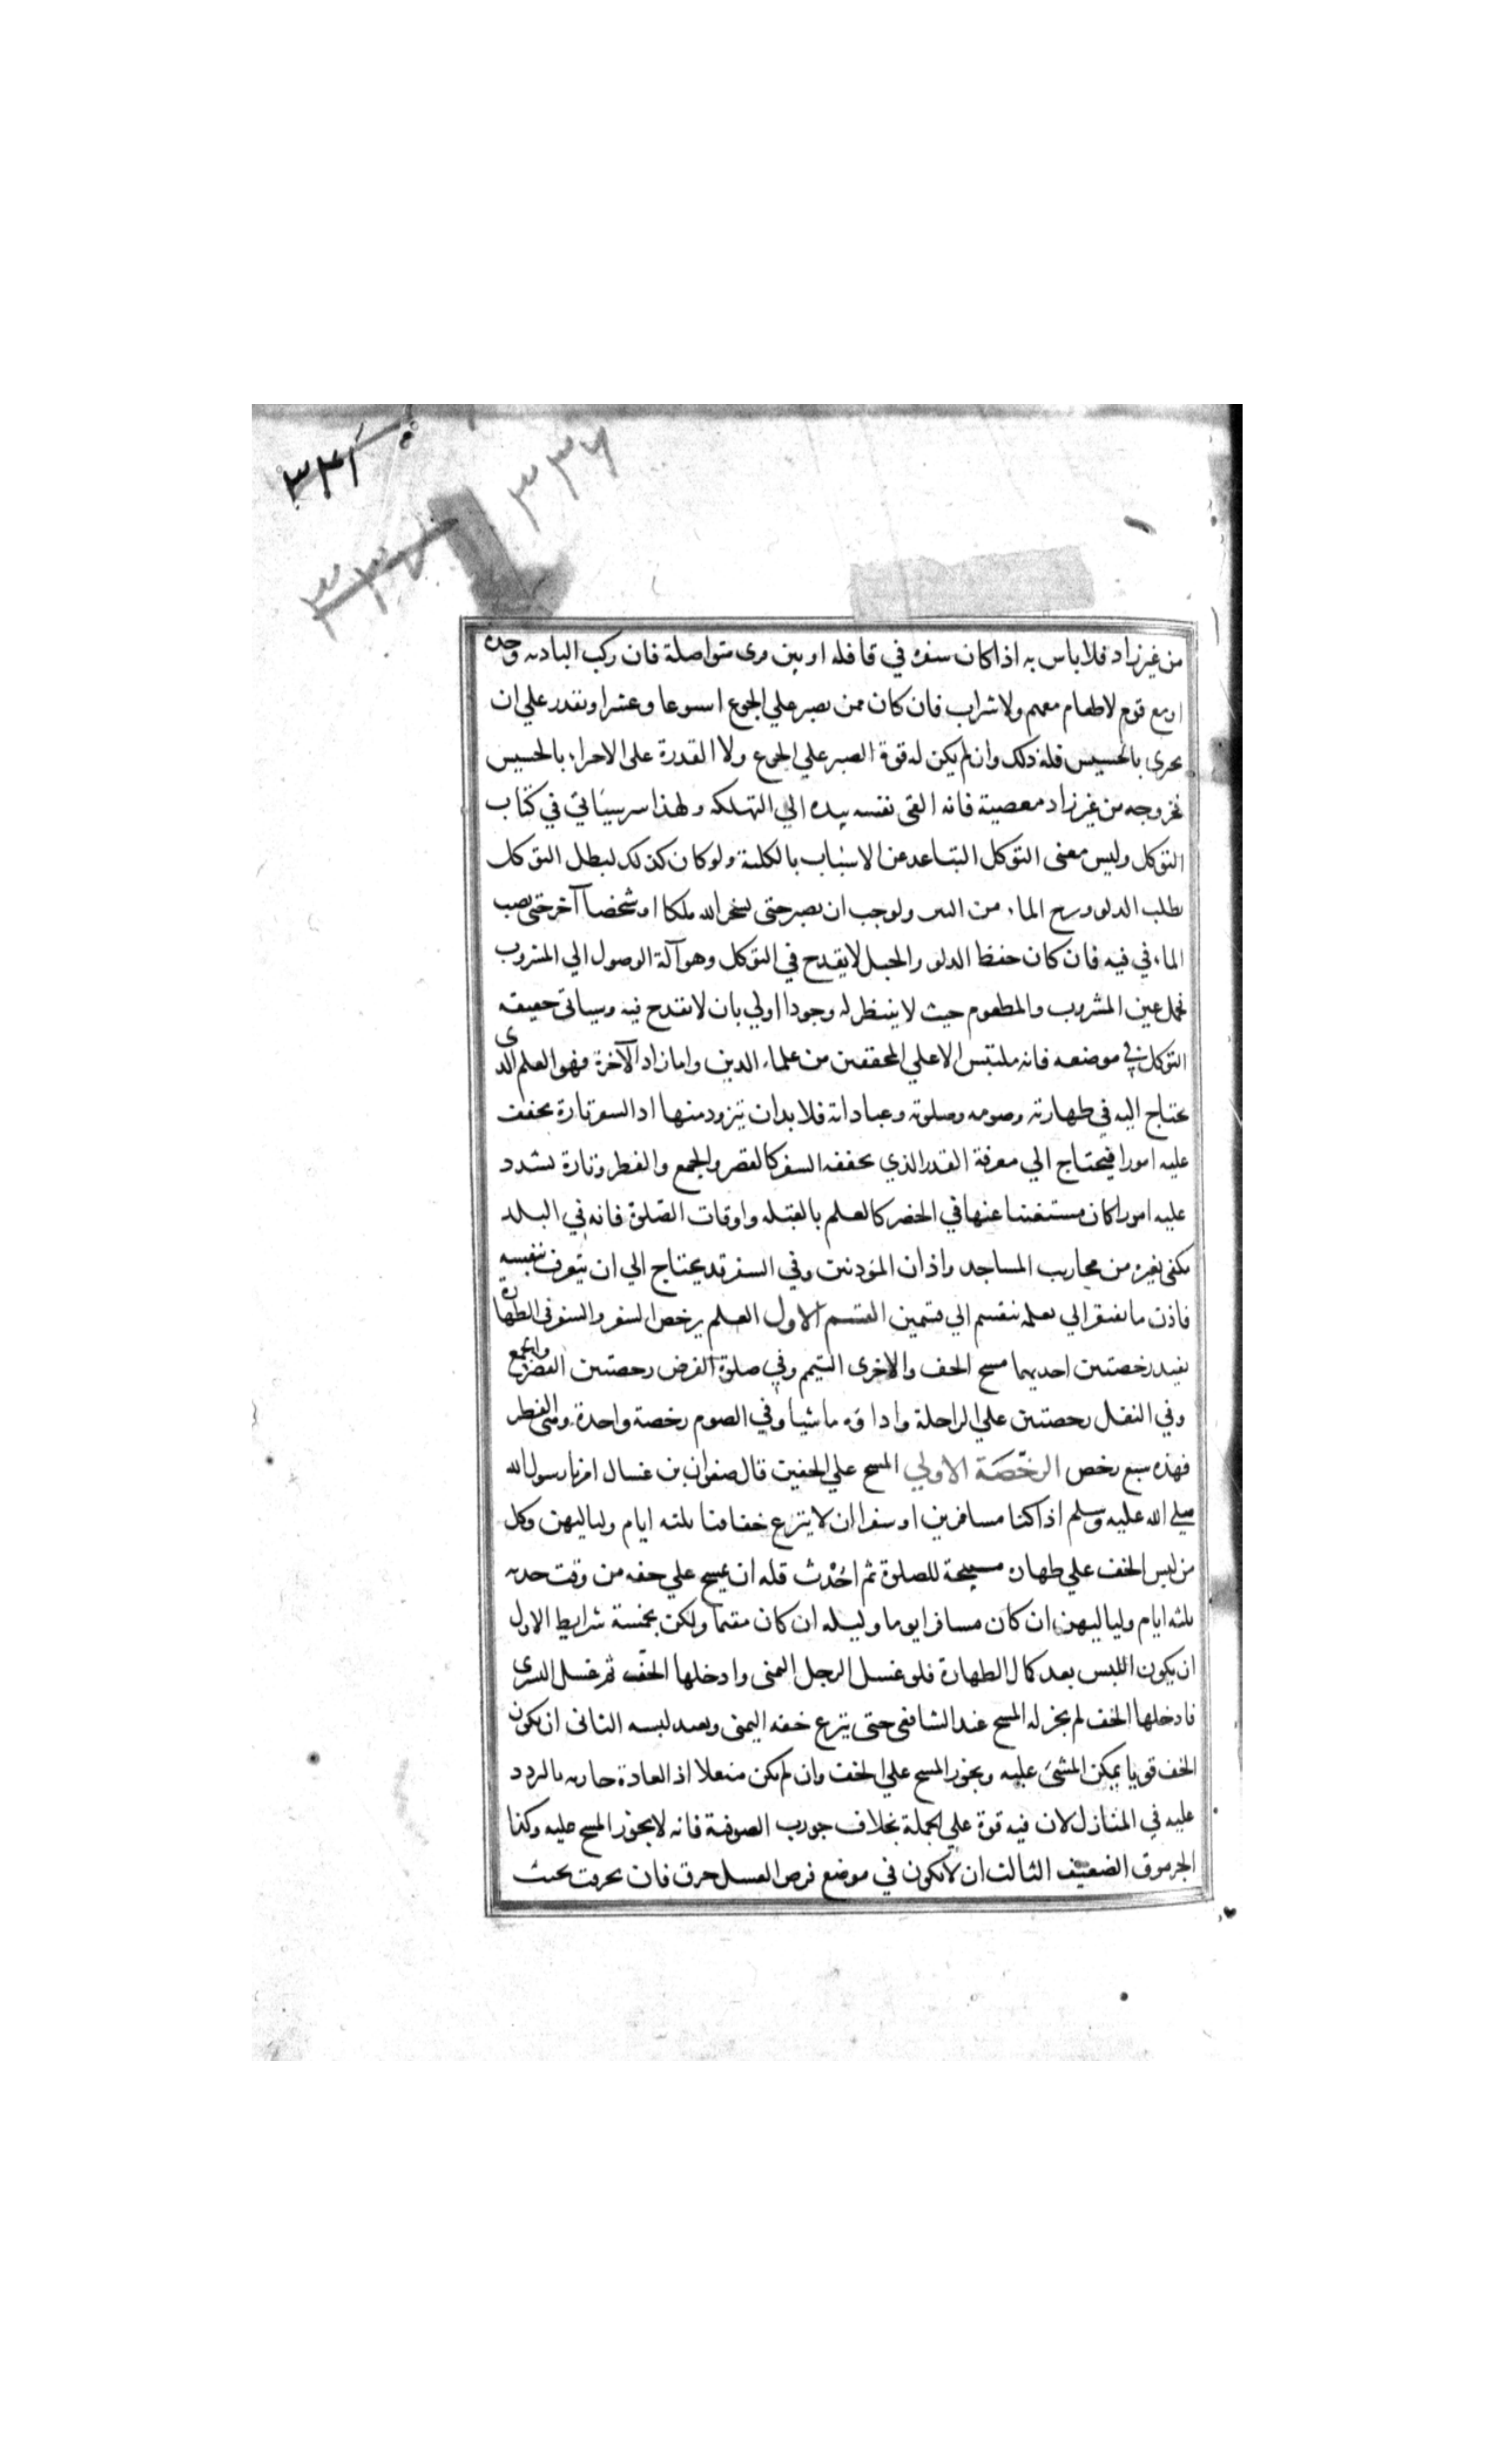 ٣٤١
٣٣٦
من غير زاد فلا باس به اذا كان سفره في قافله او بين قرى متواصلة فان ركب البادية وحده
او مع قوم لا طعام معهم ولا شراب فان كان ممن يصبر علي الجوع اسبوعا وعشرا ويقدر علي ان
يجزى بالحشيش فله ذلك وان لم يكن له قوة الصبر علي الجوع ولا القدرة على الاجزاء بالحشيش
فخروجه من غير زاد معصية فانه القى نفسه بيده الي التهلكه ولهذا سر سياتي في كتاب
التوكل وليس معنى التوكل التباعد عن الاسباب بالكلية ولو كان كذلك لبطل التوكل
بطلب الدلو ونزح الماء من البير ولوجب ان يصبر حتى يسخر الله ملكا او شخصا آخر حتى يصب
الماء في فيه فان كان حفظ الدلو والحبل لا يقدح في التوكل وهو آلة الوصول الي المشروب
فحمل عين المشروب والمطعوم حيث لا ينتظر له وجودا اولي بان لا يقدح فيه وسياتي حقيقة
التوكل في موضعه فانه ملتبس الا علي المحققين من علماء الدين واما زاد الآخرة فهو العلم الذى
يحتاج اليه في طهارته وصومه وصلوته وعباداته فلا بد ان يتزود منها اذ السفر تارة يخفف
عليه امورا فيحتاج الي معرفة القدر الذي يخففه السفر كالقصر والجمع والفطر وتارة يشدد
عليه امورا كان مستغنيا عنها في الحضر كالعلم بالقبله واوقات الصلوة فانه في البلد
يكفى بغيره من محاريب المساجد واذان المؤذنين وفي السفر قد يحتاج الي ان يتعرف بنفسه
فاذن ما يفتقر الي تعلمه ينقسم الي قسمين القسم الاول العلم برخص السفر والسفر في الطهارة
يفيد رخصتين احديهما مسح الخف والاخرى التيمم وفي صلوة الفرض رخصتين القصر والجمع
وفي النفل رخصتين علي الراحلة واداؤه ماشيا وفي الصوم رخصة واحدة وهي الفطر
فهذه سبع رخص الرخصة الاولي المسح علي الخفين قال صفوان بن عسال امرنا رسول الله
صلى الله عليه وسلم اذا كنا مسافرين او سفرا ان لا ينزع خفافنا ثلثه ايام ولياليهن وكل
من لبس الخف علي طهارة مبيحة للصلوة ثم احدث فله ان يمسح علي خفه من وقت حدثه
ثلثه ايام ولياليهن ان كان مسافرا يوما وليله ان كان مقيما ولكن بخمسة شرايط الاول
ان يكون اللبس بعد كمال الطهارة فلو غسل الرجل اليمنى وادخلها الخف ثم غسل اليسرى
فادخلها الخف لم يجز له المسح عند الشافعي حتى ينزع خفه اليمنى ويعيد لبسه الثانى ان يكون
الخف قويا يمكن المشى عليه ويجوز المسح علي الخف وان لم يكن منعلا اذ العادة جاريه بالتردد
عليه في المنازل لان فيه قوة علي الجملة بخلاف جورب الصوفية فانه لا يجوز المسح عليه وكذا
الجرموق الضعيف الثالث ان لا يكون في موضع فرض الغسل خرق فان تخرقت بحيث